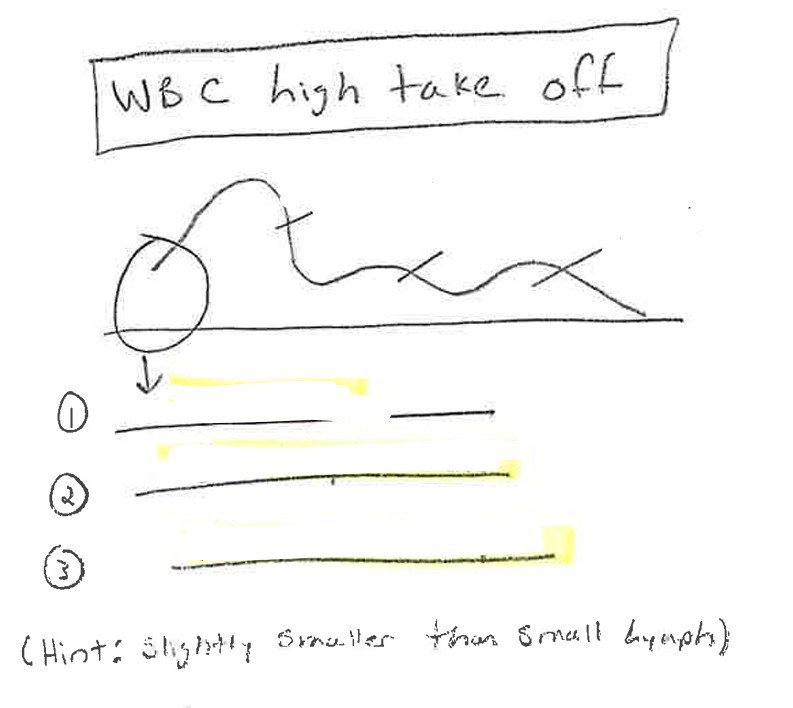 WBC high take off
①
②
③
(Hint: Slightly smaller than small lymphs)